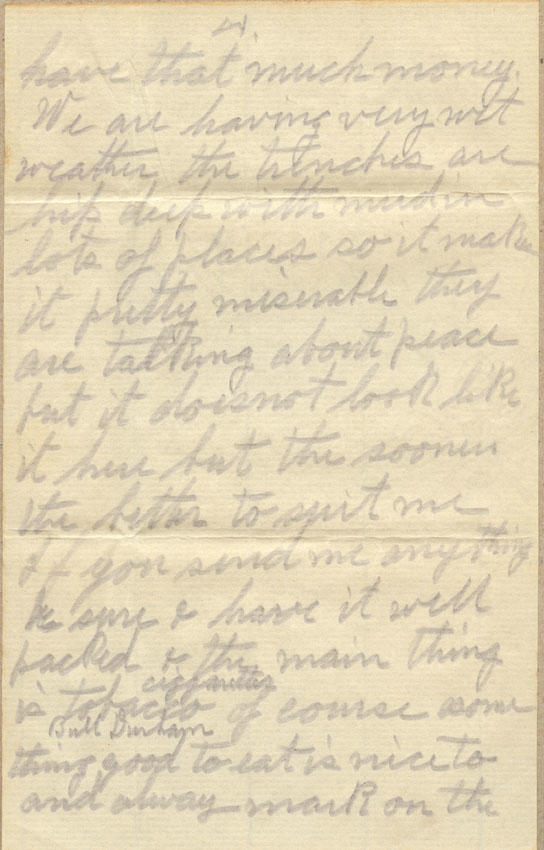 4.
have that much money.
We are having very wet
weather the trenches are
hip deep with mud in
lots of places so it makes
it pretty miserable they
are talking about peace
but it does not look like
it here but the sooner
the better to suit me
If you send me any thing
be sure & have it well
packed & the main thing
cigarettes
is tobacco of course some
Bull Durham
thing good to eat is nice to
and alway mark on the